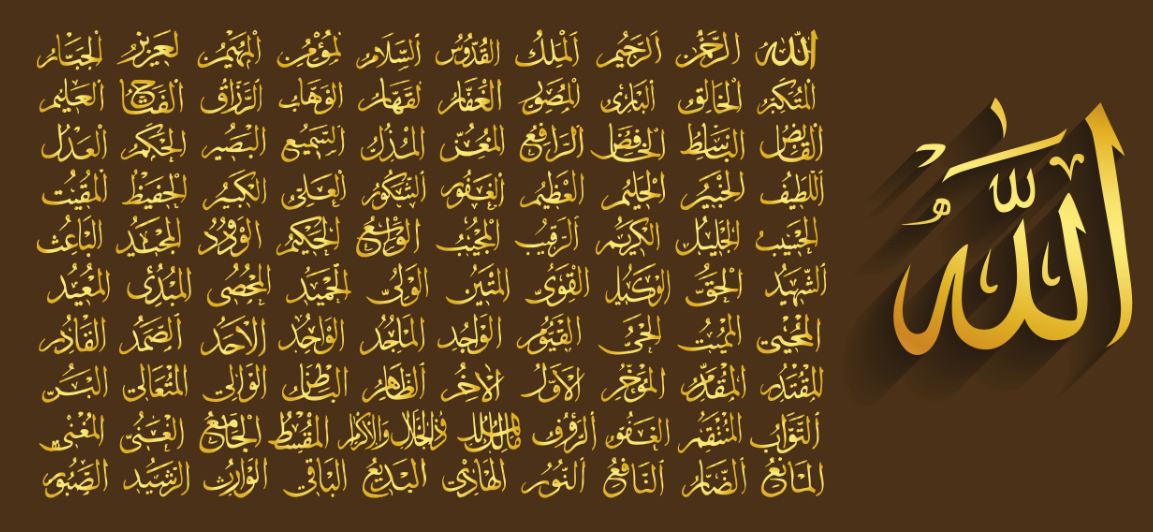 الله
الله الرحمن الرحيم الملك القدوس السلام المؤمن المهيمن العزيز الجبار
المتكبر الخالق البارئ المصور الغفار القهار الوهاب الرزاق الفتاح العليم
القابض الباسط الخافض الرافع المعز المذل السميع البصير الحكم العدل
اللطيف الخبير الحليم العظيم الغفور الشكور العلي الكبير الحفيظ المقيت
الحسيب الجليل الكريم الرقيب المجيب الواسع الحكيم الودود المجيد الباعث
الشهيد الحق الوكيل القوى المتين الولى الحميد المحصى المبدئ المعيد
المحيي المميت الحي القيوم الواجد الماجد الواحد الاحد الصمد القادر
المقتدر المقدم المؤخر الأول الآخر الظاهر الباطن الوالي المتعالي البر
التواب المنتقم العفو الرؤوف مالك الملك ذو الجلال والإكرام المقسط الجامع الغنى المغنى
المانع الضار النافع النور الهادي البديع الباقي الوارث الرشيد الصبور